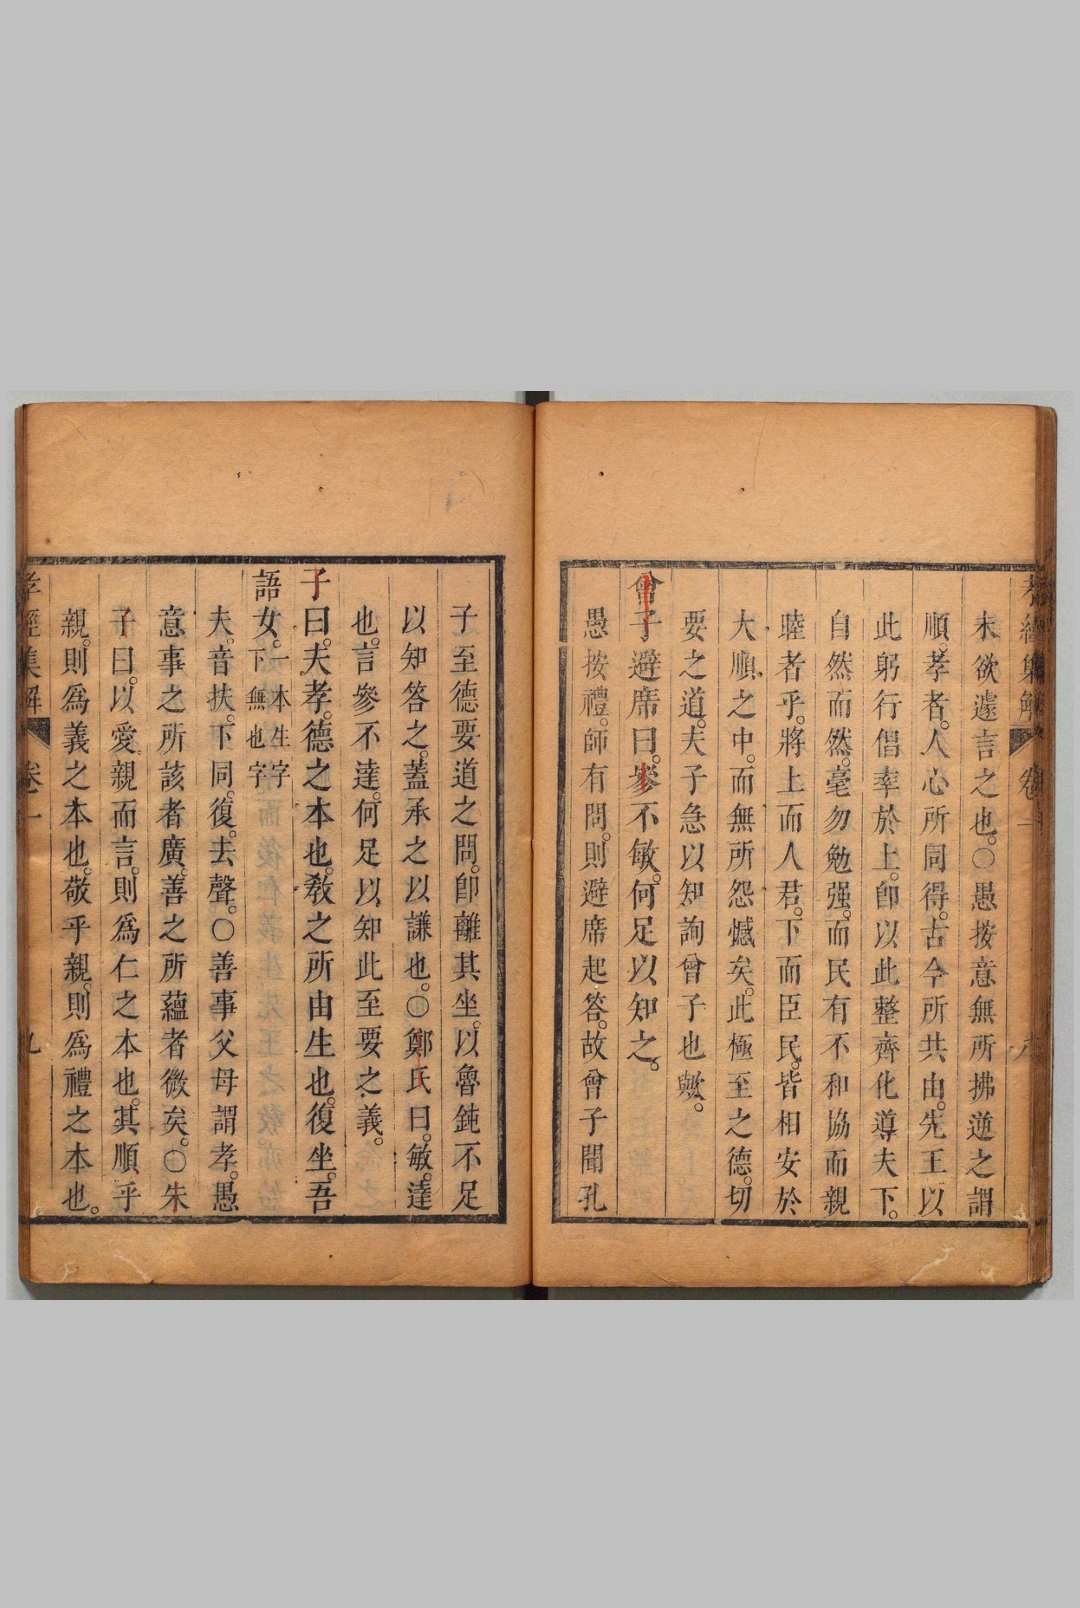 未欲遽言之也。○愚按意無所拂逆之謂
順。孝者。人心所同得。古今所共由。先王以
此躬行倡率於上。卽以此整齊化導夫下。
自然而然。毫勿勉强。而民有不和協而親
睦者乎。將上而人君。下而臣民。皆相安於
大順之中。而無所怨憾矣。此極至之德。切
要之道。夫子急以知詢曾子也歟。
曾子避席曰。參不敏。何足以知之。
愚按禮。師有問。則避席起答。故曾子聞孔
子至德要道之問。卽離其坐。以魯鈍不足
以知答之。蓋承之以謙也。○鄭氏曰。敏。達
也。言參不達。何足以知此至要之義。
子曰。夫孝。德之本也。敎之所由生也。復坐。吾
語女。一本生字下無也字
夫。音扶。下同。復。去聲。○善事父母謂孝。愚
意事之所該者廣。善之所蘊者微矣。○朱
子曰。以愛親而言。則爲仁之本也。其順乎
親。則爲義之本也。敬乎親。則爲禮之本也。
孝經集解 卷一 九